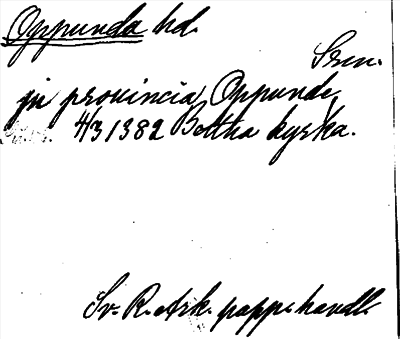 Oppunda hd.
Srm.
jn prouincia Oppunde
4/3 1382 Bettna kyrka.
Sv. R. Ark. papp. handl.